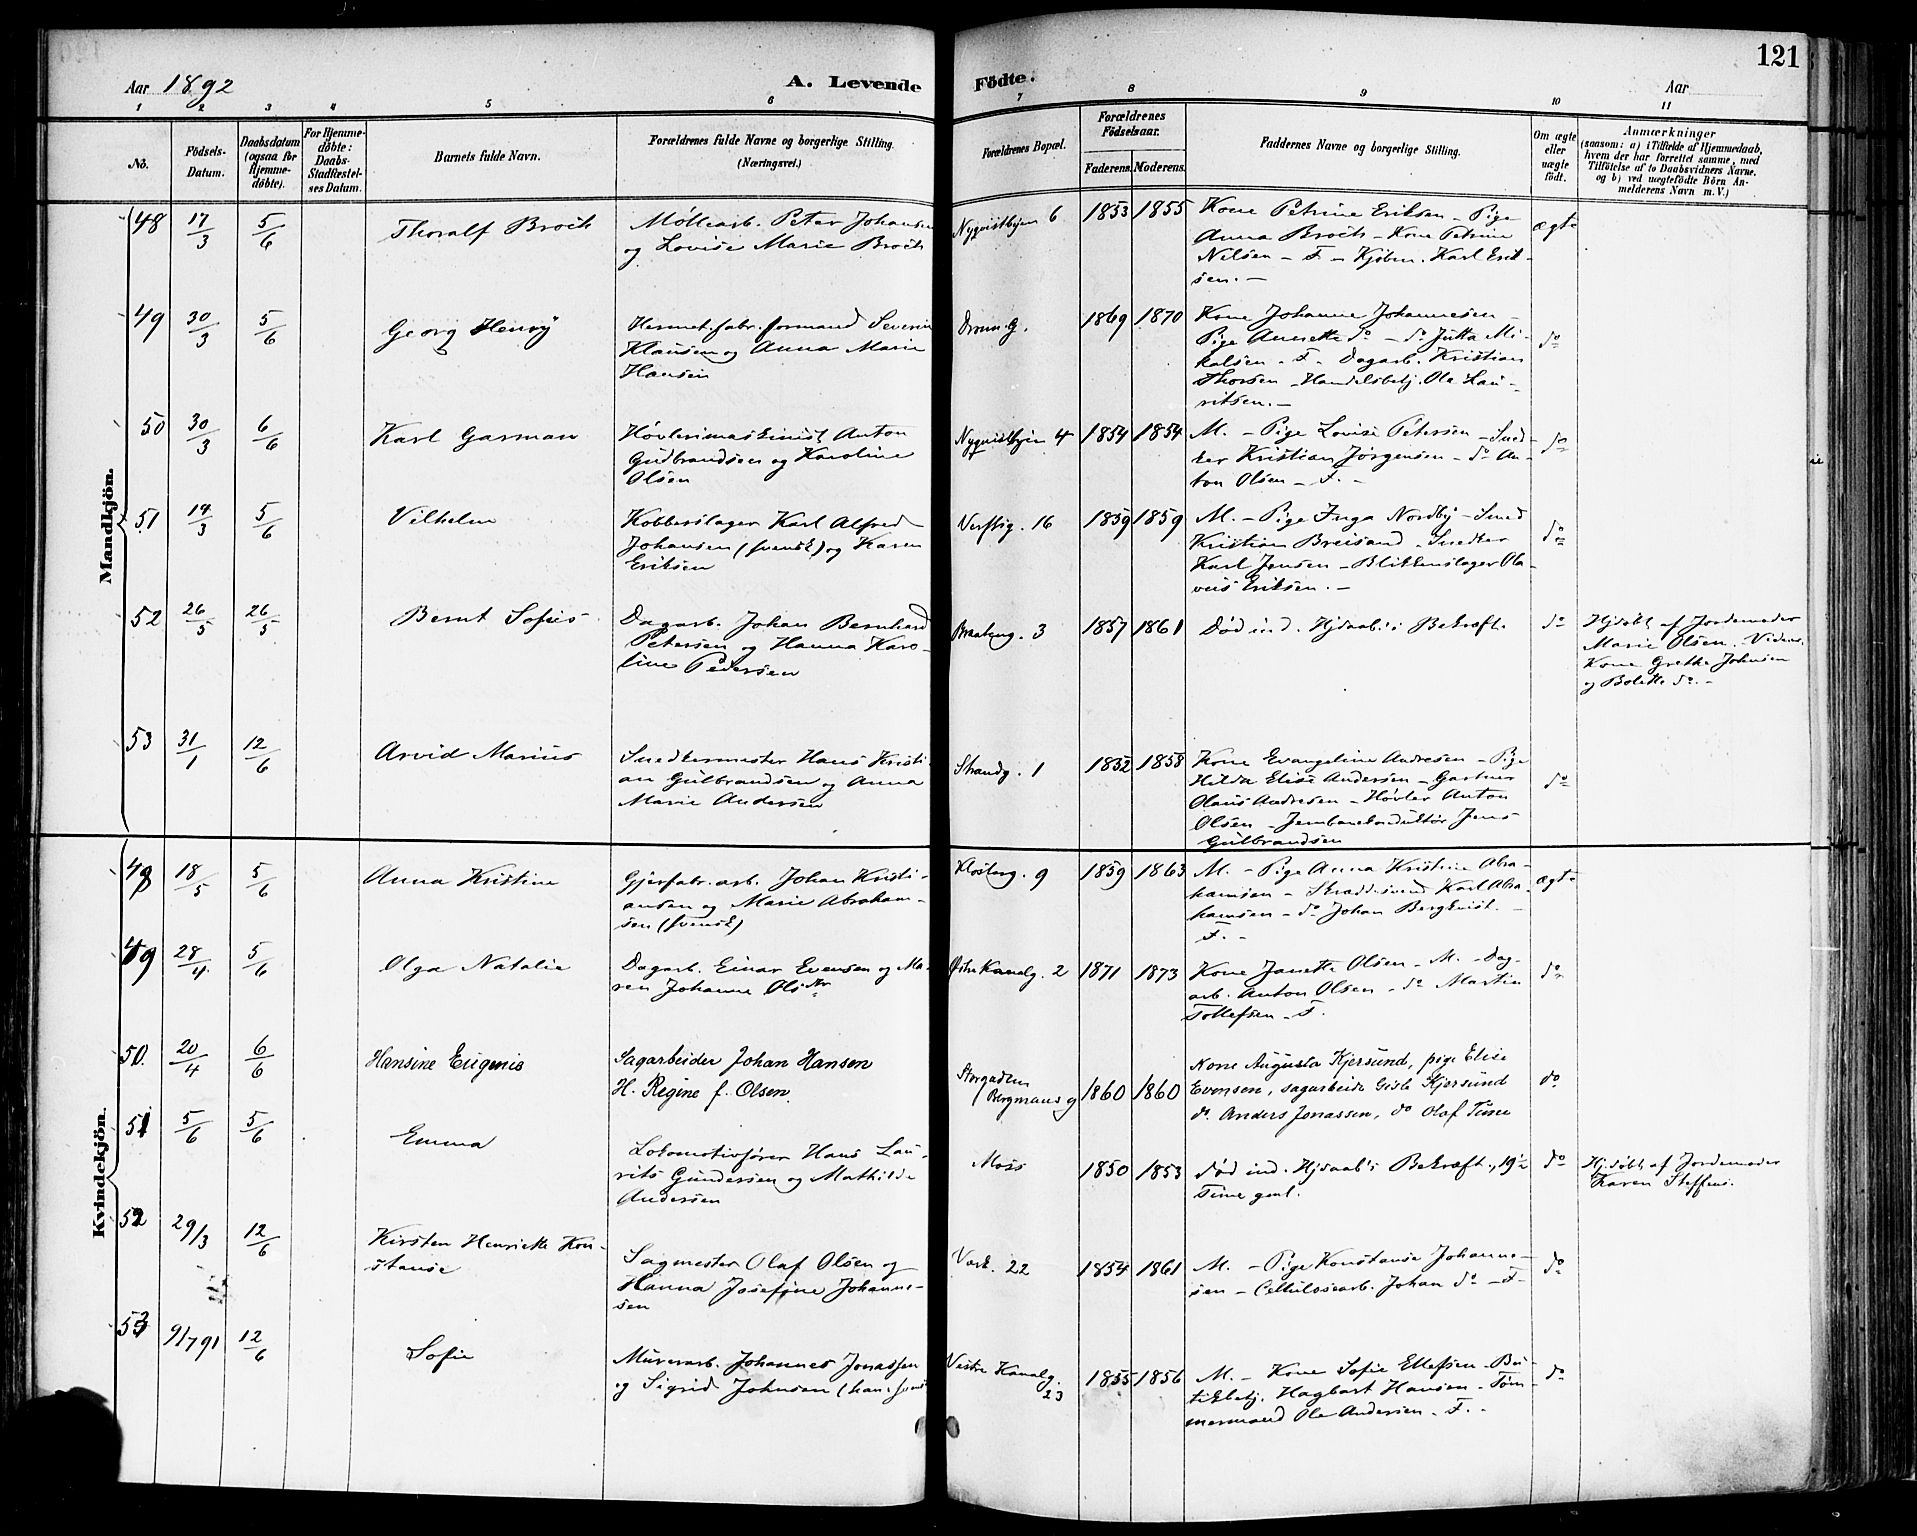 121
Aar 1892
A. Levende
Födte.
Aar
1 2 3 4 5 6 7 8 9 10 11
No.
Födsels-
Datum.
Daabsdatum
(ogsaa for
Hjemme-
döbte).
For Hjemme-
döbte:
Daabs-
Stadfæstel-
ses Datum.
Barnets fulde Navn.
Forældrenes fulde Navne og borgerlige Stilling.
(Næringsvei.)
Forældrenes Bopæl.
Forældrenes
Födselsaar.
Faderens. Moderens.
Faddernes Navne og borgerlige Stilling.
Om ægte
eller
uægte
födt.
Anmærkninger
(saasom: a) i Tilfælde af Hjemmedaab,
hvem der har forrettet samme, med
Tilföielse af to Daabsvidners Navne,
og b) ved uægtefödte Börn An-
melderens Navn m. V.)
Mandkjön.
48 17/3 5/6 Thoralf Broch
Møllearb. Peter Johansen
og Lovise Marie Broch
Nyqvistbyen 6 1853 1855
Kone Petrine Eriksen – Pige
Anna Broch – Kone Petrine
Nilsen – F – Kjöbm. Karl Erik-
sen. –
ægte
49 30/3 5/6 Georg Henry
Hermet.fabr.formand Severin
Klausen og Anna Marie
Hansen
Dronn.g. 1869 1870
Kone Johanne Johannesen –
Pige Annette do – do Jutta Mi-
kalsen – F. Dagarb. Kristian
Thorsen – Handelsbetj. Ole Lau-
ritsen. –
do
50 30/3 6/6 Karl Garman
Høvlerimaskinist Anton
Gudbrandsen og Karoline
Olsen
Nyqvistbyen 4 1854 1854
M. – Pige Lovise Petersen – Sned-
ker Kristian Jørgensen – do An-
ton Olsen – F. –
do
51 14/3 5/6 Vilhelm
Kobberslager Karl Alfred
Johansen (svensk) og Karen
Eriksen
Verftsg. 16 1859 1859
M. – Pige Inga Nordby – Smed
Kristian Breisand – Snedker
Karl Jensen – Blikkenslager Ola-
veus Eriksen. –
do
52 26/5 26/5 Bernt Sofus
Dagarb. Johan Bernhard
Petersen og Hanna Karo-
line Pedersen
Braateng. 3 1857 1861
Død ind. Hjdaab's Bekræft.
do
Hjdøbt af Jordemoder
Marie Olsen. Vidner
Kone Grethe Johnsen
og Bolette do. –
53 31/1 12/6 Arvid Marius
Snedkermester Hans Kristi-
an Gulbrandsen og Anna
Marie Andersen
Strandg. 1 1852 1858
Kone Evangeline Andresen – Pige
Hilda Elise Andersen – Gartner
Olaus Andresen – Høvler Anton
Olsen – Jernbanekonduktør Jens
Gulbrandsen
do
Kvindekjön.
48 18/5 5/6 Anna Kristine
Gjærfabr.arb. Johan Kristi-
ansen og Marie Abraham-
sen (svensk)
Klosterg. 9 1859 1863
M. – Pige Anna Kristine Abra-
hamsen – Skræddersvend Karl Abra-
hamsen – do Johan Bergkvist. –
F. –
ægte
49 28/4 5/6 Olga Natalie
Dagarb. Einar Evensen og Ma-
ren Johanne Olsdtr
Østre Kanalg. 2 1871 1873
Kone Janette Olsen – M. – Dag-
arb. Anton Olsen – do Martin
Tollefsen – F.
do
50. 20/4 6/6 Hansine Eugenie
Sagarbeider Johan Hansen
H. Regine f. Olsen
Storgaden
Bergmans g 1860 1860
Kone Augusta Kjersund, pige Elise
Evensen, sagarbeide Gisle Kjersund
do Anders Jonassen, do Olaf Tune
do
51 5/6 5/6 Emma
Lokomotivfører Hans Lau-
rits Gundersen og Mathilde
Andersen
Moss 1850 1853
død ind. Hjdaab's Bekræft., 19½
Time gml.
do
Hj.døbt af Jordemoder
Karen Steffens.
52 29/3 12/6 Kirsten Henriette Kon-
stanse
Sagmester Olaf Olsen og
Hanna Josefine Johanne-
sen
Værk. 22 1854 1861
M. – Pige Konstanse Johanne-
sen – Cellulosearb. Johan do – F –
do
53 9/7 91 12/6 Sofie
Murerarb. Johannes Jonassen
og Sigrid Johnsen (han svensk
Vestre Kanalg.
23 1855 1856
M. – Kone Sofie Ellefsen – Bu-
tikbetj. Hagbart Hansen – Tøm-
mermand Ole Andersen – F. –
do